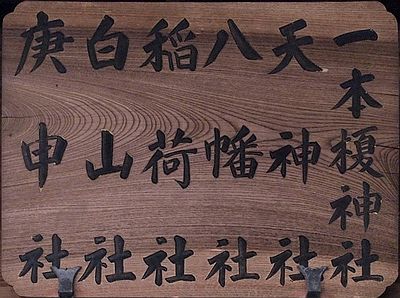 一本榎神社
天神社
八幡社
稲荷社
白山社
庚申社